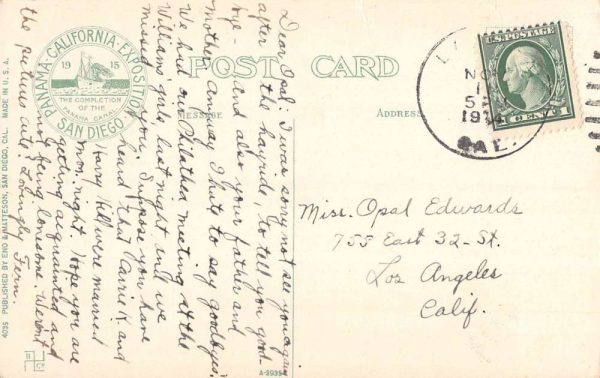 PANAMA-CALIFORNIA-EXPOSITION
1915
THE COMPLETION
OF THE
PANAMA CANAL
SAN DIEGO
POST CARD
MESSAGE
ADDRESS
U.S. POSTAGE
1 CENT 1
NO
1
5
191
CAL.
Miss. Opal Edwards
755 East 32-St.
Los Angeles
Calif.
Dear Opal:- I was sorry not see you again
after the hayride, to tell you good-
bye- and also your father and
mother. Anyway I hate to say goodbyes.
We had our Philathea meeting at the
Williams girls last night and we
missed you. Suppose you have
heard that Carrie K. and
Harry Hill were married
night. Hope you are
getting acquainted and
not being lonesome. Weren't
the pictures cute? Lovingly Fern.
4035 PUBLISHED BY ENO & MATTESON, SAN DIEGO, CAL. MADE IN U.S.A.